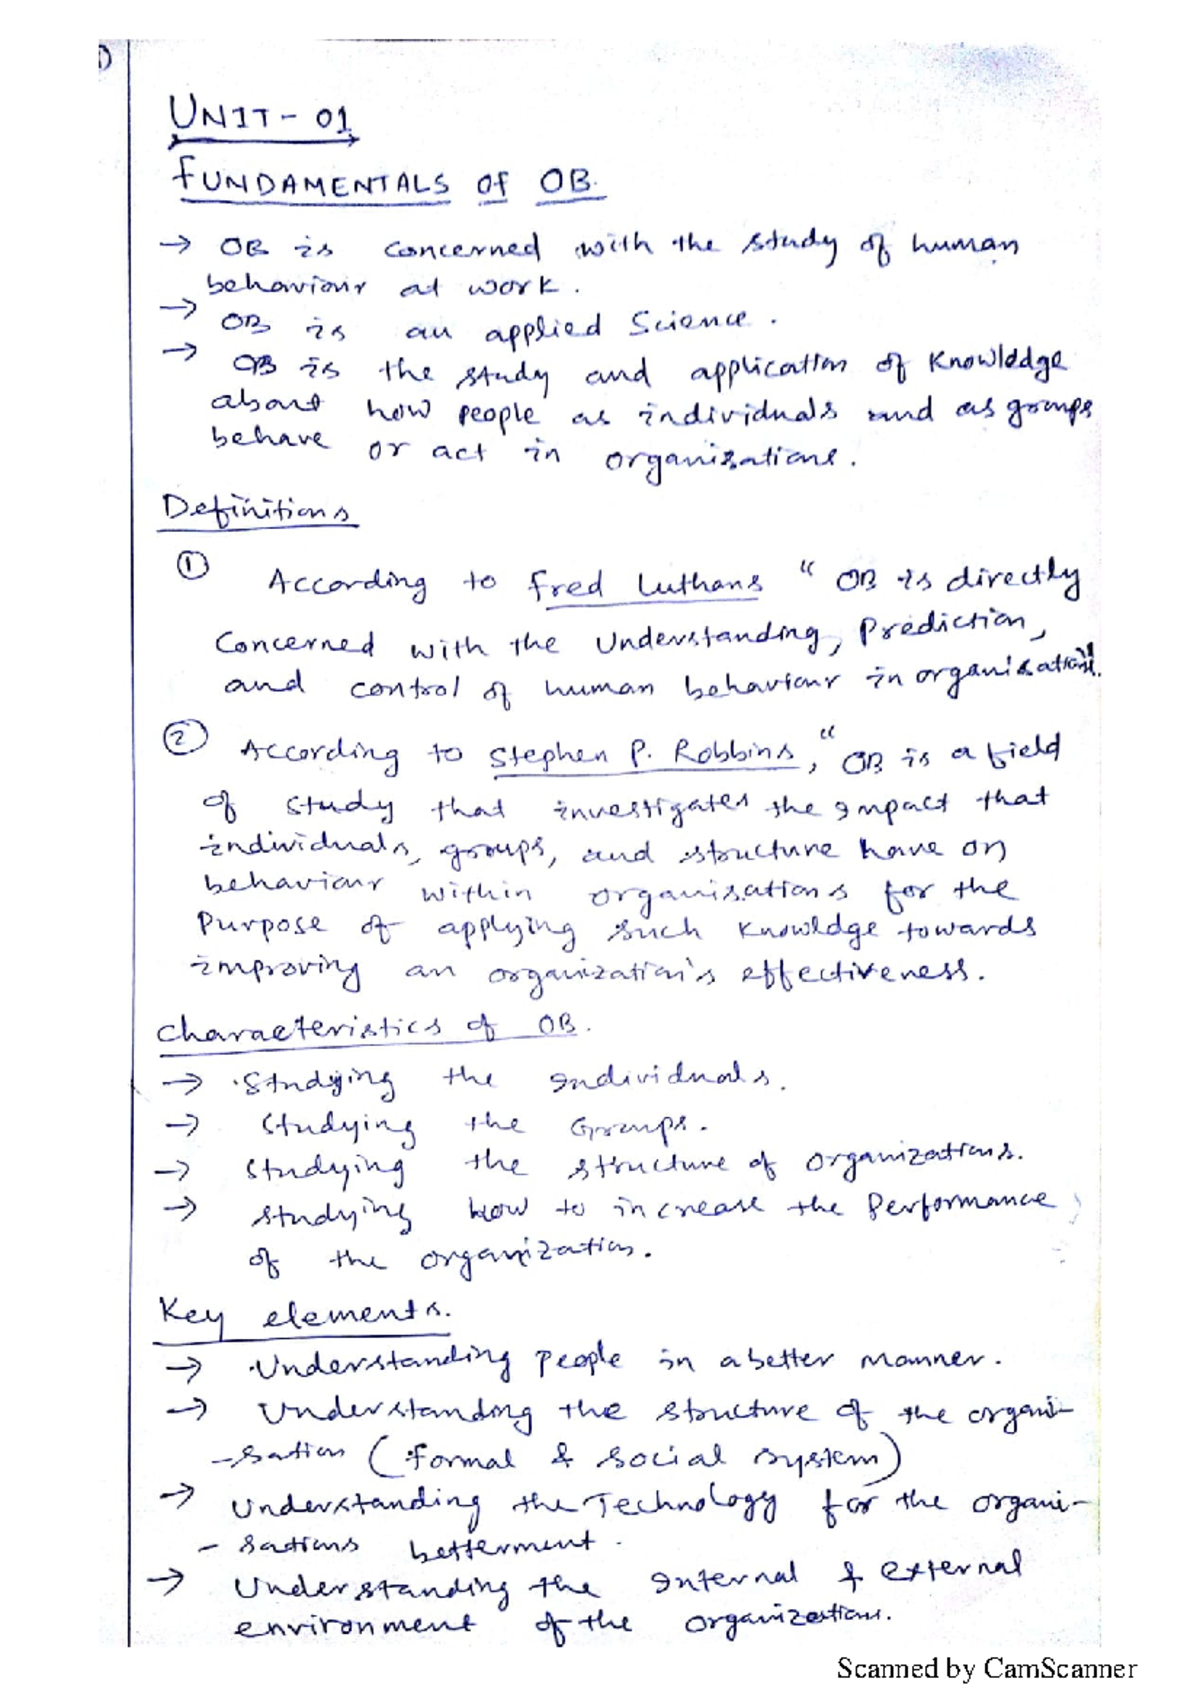 1)
UNIT - 01
FUNDAMENTALS OF OB.
→ OB is concerned with the study of human
behaviour at work.
→ OB is an applied Science.
→ OB is the study and application of Knowledge
about how people as individuals and as groups
behave or act in organisations.
Definitions
① According to Fred Luthans " OB is directly
Concerned with the Understanding, Prediction,
and control of human behaviour in organisation".
② According to Stephen P. Robbins, " OB is a field
of study that investigates the Impact that
individuals, groups, and structure have on
behaviour within organisations for the
Purpose of applying such knowldge towards
improving an organization's effectiveness.
Characteristics of OB.
→ Studying the Individuals.
→ Studying the Groups.
→ Studying the structure of organizations.
→ Studying How to increase the Performance
of the organization.
Key elements.
→ Understanding people in a better manner.
→ Understanding the structure of the organi-
-sation (formal & social system)
→ Understanding the Technology for the organi-
- sations betterment.
→ Understanding the Internal & external
environment of the organizations.
Scanned by CamScanner